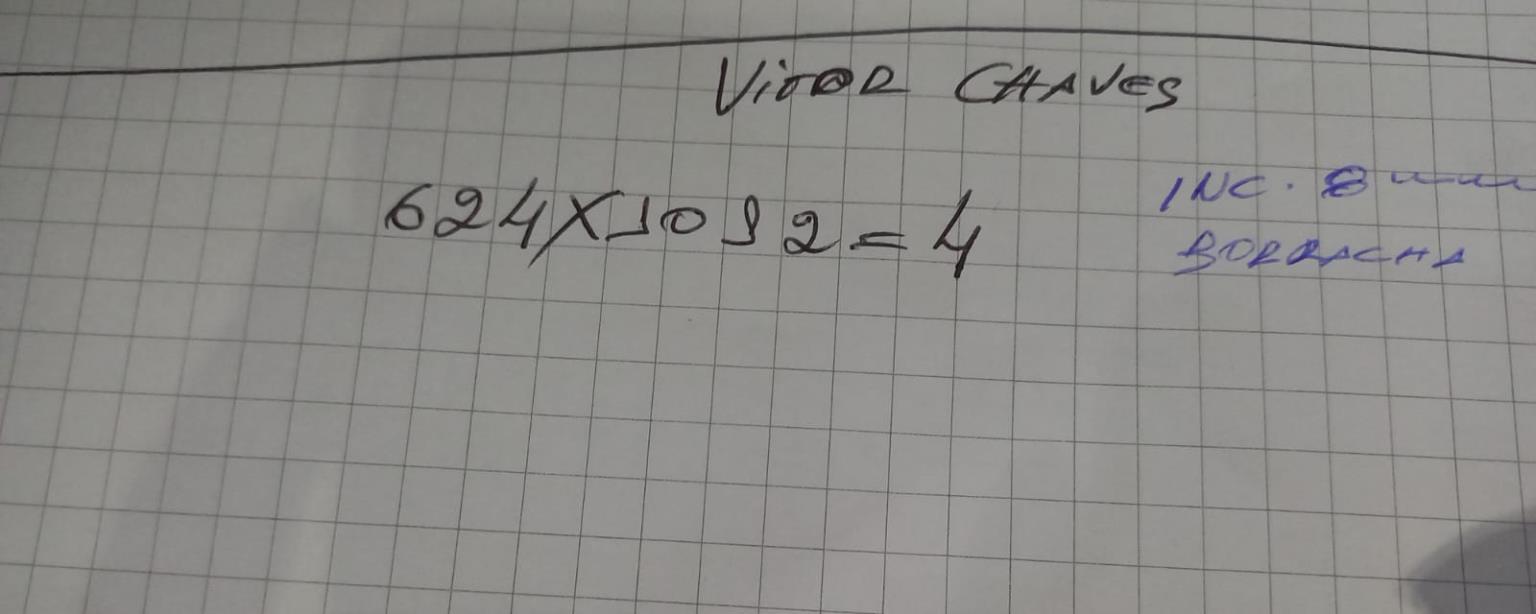 VITOR CHAVES
624X1092=4
INC. 8
BORRACHA